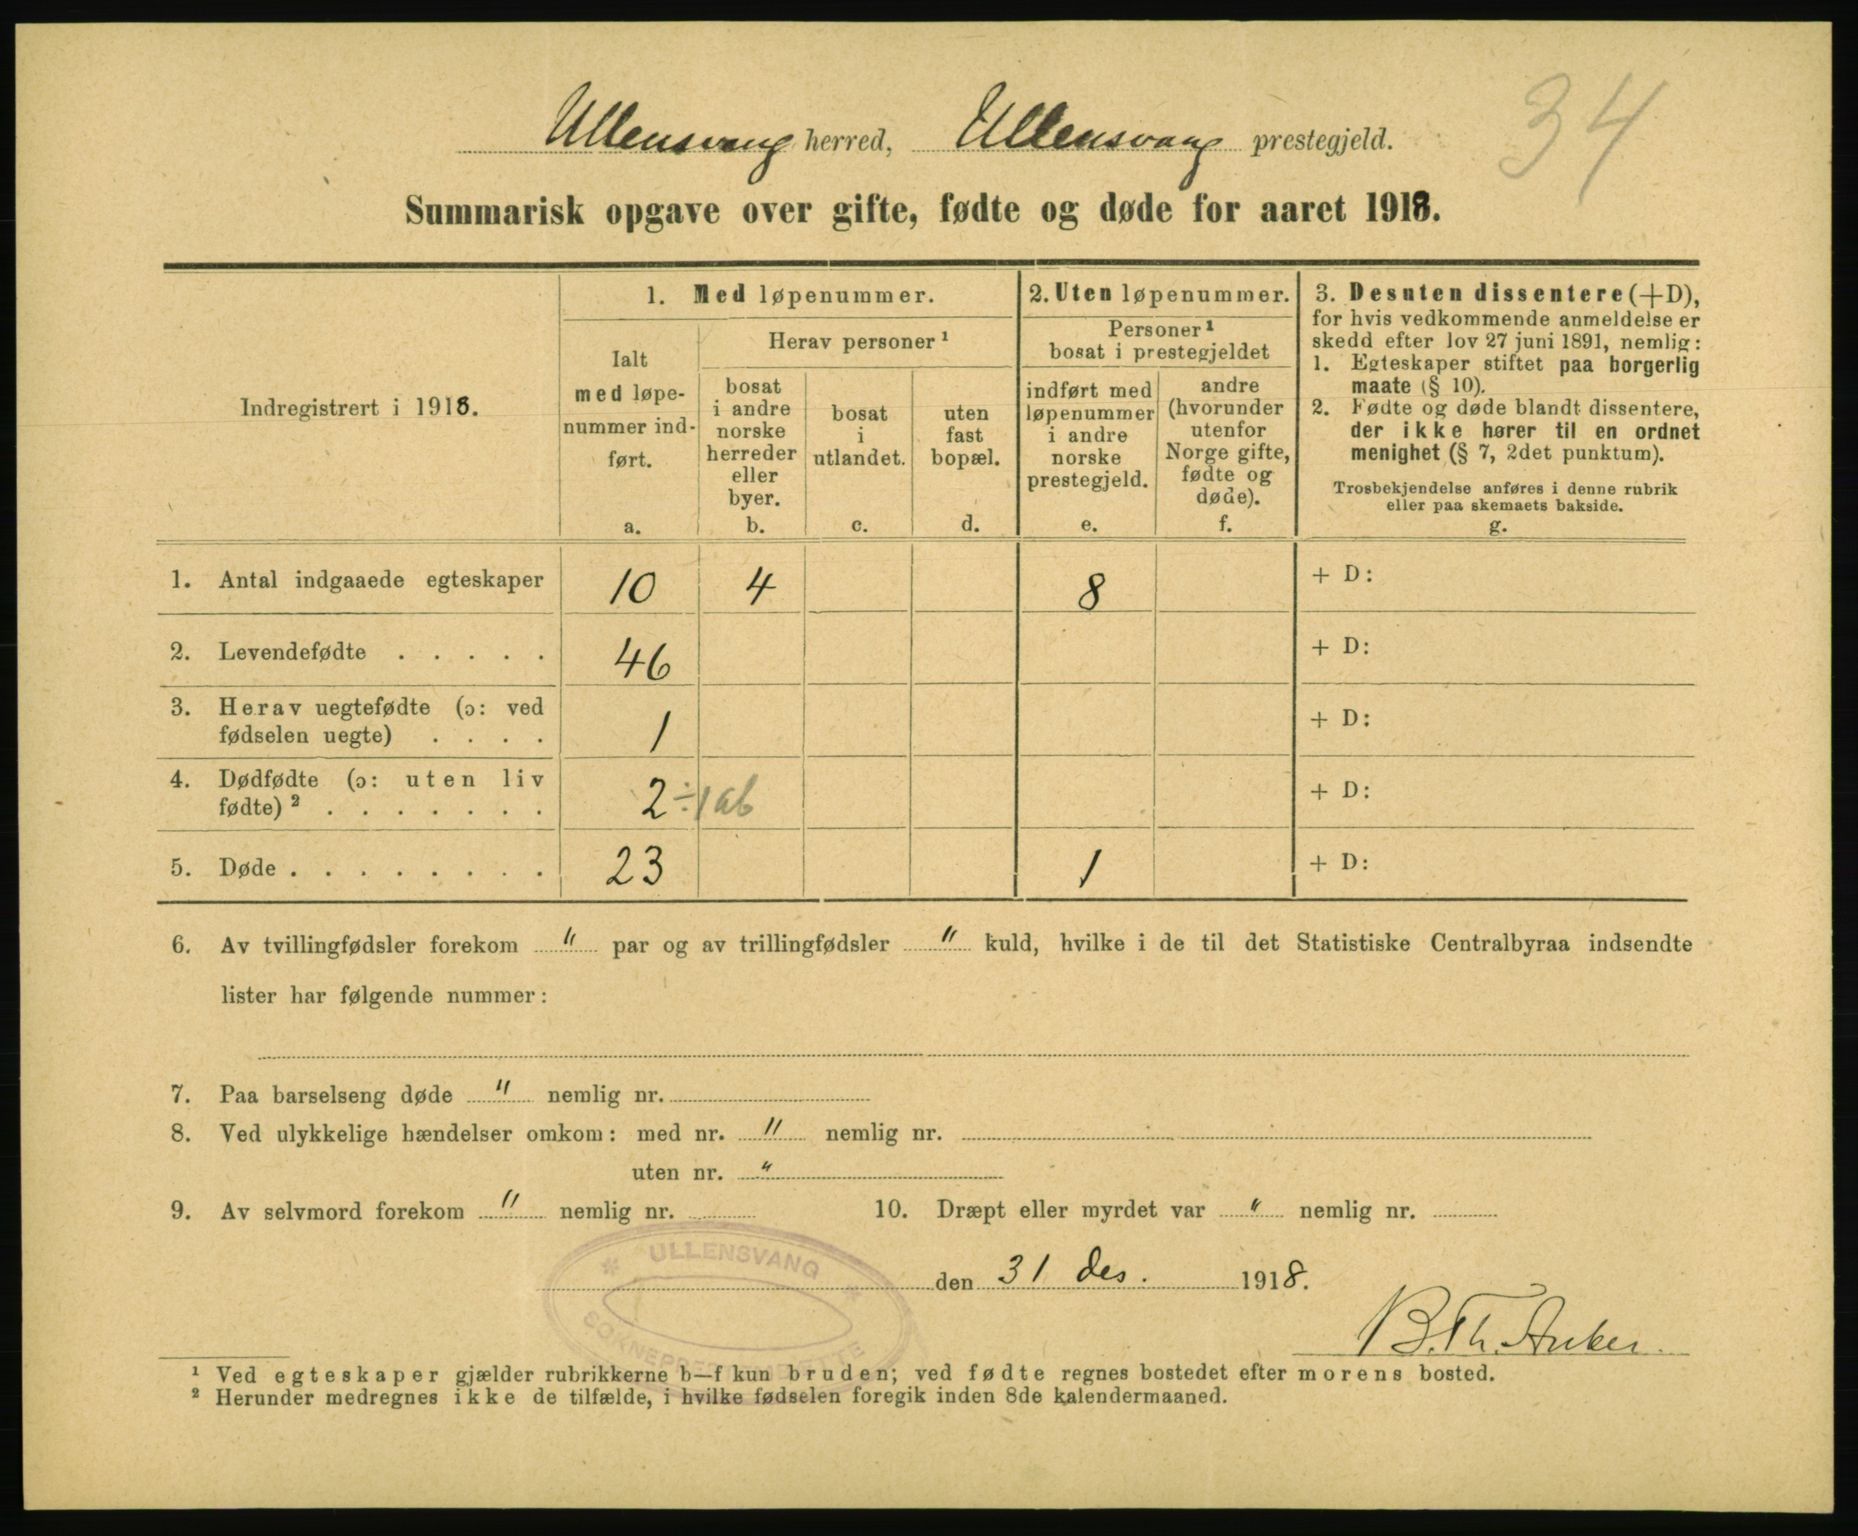 34
Ullensvang herred, Ullensvang prestegjeld.
Summarisk opgave over gifte, fødte og døde for aaret 1918.
Indregistrert i 1918.
1. Med løpenummer.
Ialt
med løpe-
nummer ind-
ført.
a.
Herav personer ¹
bosat
i andre
norske
herreder
eller
byer.
b.
bosat
i
utlandet.
c.
uten
fast
bopæl.
d.
2. Uten løpenummer.
Personer ¹
bosat i prestegjeldet
indført med
løpenummer
i andre
norske
prestegjeld.
e.
andre
(hvorunder
utenfor
Norge gifte,
fødte og
døde).
f.
3. Desuten dissentere (+D),
for hvis vedkommende anmeldelse er
skedd efter lov 27 juni 1891, nemlig:
1. Egteskaper stiftet paa borgerlig
maate (§ 10).
2. Fødte og døde blandt dissentere,
der ikke hører til en ordnet
menighet (§ 7, 2det punktum).
Trosbekjendelse anføres i denne rubrik
eller paa skemaets bakside.
g.
1. Antal indgaaede egteskaper 10 4 8 + D:
2. Levendefødte . . . . . 46 + D:
3. Herav uegtefødte (ɔ: ved
fødselen uegte) . . . . 1 + D:
4. Dødfødte (ɔ: uten liv
fødte) ² . . . . . . . 2 ÷1 ab + D:
5. Døde . . . . . . . . 23 1 + D:
6. Av tvillingfødsler forekom " par og av trillingfødsler " kuld, hvilke i de til det Statistiske Centralbyraa indsendte
lister har følgende nummer:
7. Paa barselseng døde " nemlig nr.
8. Ved ulykkelige hændelser omkom: med nr. " nemlig nr.
uten nr. "
9. Av selvmord forekom " nemlig nr.
10. Dræpt eller myrdet var " nemlig nr.
ULLENSVANG
SOKNEPRESTEMBETTE
den 31 des. 1918.
B. Th. Anker.
¹ Ved egteskaper gjælder rubrikkerne b—f kun bruden; ved fødte regnes bostedet efter morens bosted.
² Herunder medregnes ikke de tilfælde, i hvilke fødselen foregik inden 8de kalendermaaned.